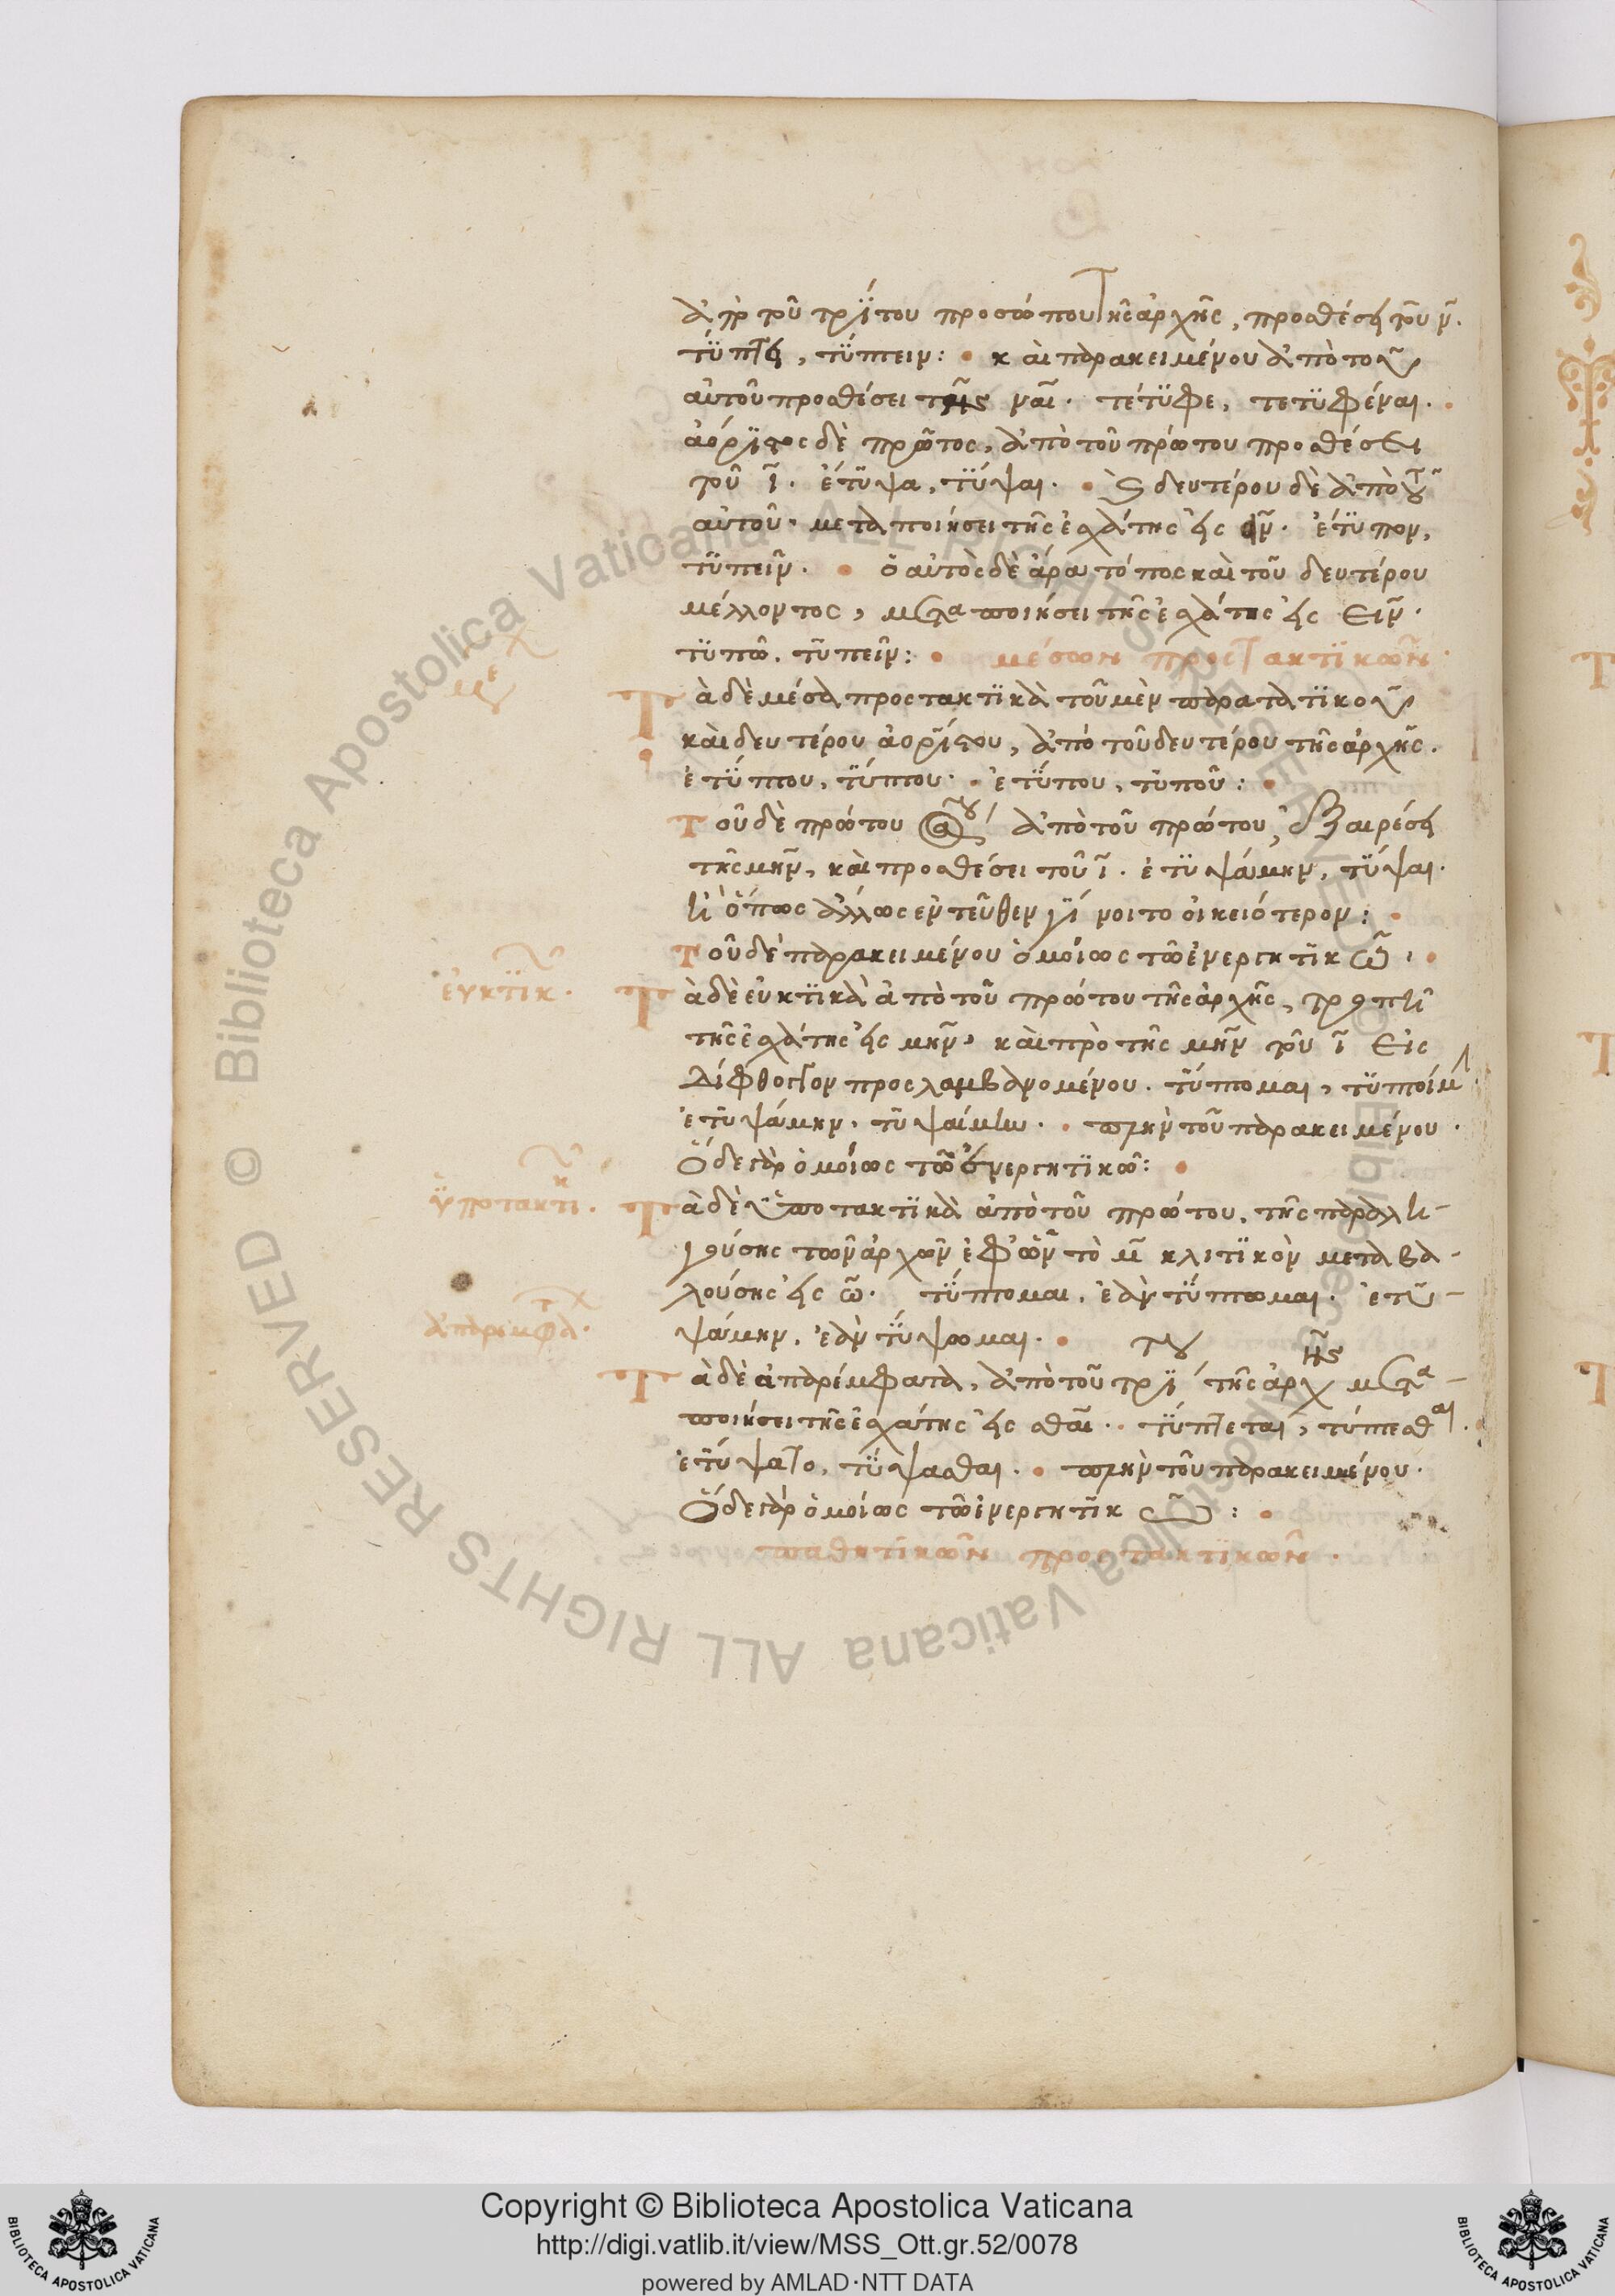 ἀπὸ τοῦ τρίτου προσώπου τῆς ἀρχῆς, προσθέσει τοῦ ν.
τύπτει, τύπτειν: κаὶ παρακειμένου ἀπὸ τοῦ
αὐτοῦ προσθέσει τῆς ναι. τέτυφε, τετυφέναι.
ἀόριστος δὲ πρῶτος, ἀπὸ τοῦ πρώτου προσθέσει
τοῦ ι. ἔτυψα, τύψαι. δευτέρου δὲ ἀπὸ τοῦ
αὐτοῦ. μεταποιήσει τῆς ἐσχάτης εἰς ἔτυπον,
τυπεῖν. ὁ αὐτὸς δὲ ἄρα τόπος καὶ τοῦ δευτέρου
μέλλοντος, μεταποιήσει τῆς ἐσχάτης εἰς ειν.
τυπῶ. τυπεῖν: μέσων προστακτικῶν
Τὰ δὲ μέσα προστακτικὰ τοῦ μὲν παρατατικοῦ
καὶ δευτέρου ἀορίστου, ἀπὸ τοῦ δευτέρου τῆς ἀρχῆς.
ἐτύπτου, τύπτου. ἐτύπου, τυποῦ:
Τοῦ δὲ πρώτου ἀπὸ τοῦ πρώτου, ἐξαιρέσει
τῆς μην, καὶ προσθέσει τοῦ ι. ἐτυψάμην, τύψαι.
ἢ ὅπως ἄλλως ἐντεῦθεν γίνοιτο οἰκειότερον:
Τοῦ δὲ παρακειμένου ὁμοίως τῶ ἐνεργητικῶ.
εὐκτικ.
Τὰ δὲ εὐκτικὰ ἀπὸ τοῦ πρώτου τῆς ἀρχῆς, τροπῆ
τῆς ἐσχάτης εἰς μην. καὶ πρὸ τῆς μην τοῦ ι εἰς
δίφθογγον προσλαμβανομένου. τύπτομαι, τυπτοίμην
ἐτυψάμην. τυψαίμην. πλὴν τοῦ παρακειμένου.
ὅδε γὰρ ὁμοίως τῶ ἐνεργητικῶ:
ὑποτακτικ.
Τὰ δὲ ὑποτακτικὰ ἀπὸ τοῦ πρώτου, τῆς παραλη-
γούσης τῶν ἀρχῶν ἐφ' ὧν τὸ μ κλιτικὸν μεταβα-
λούσης εἰς ω. τύπτομαι, ἐὰν τύπτωμαι. ἐτυ-
ἀπαρέμφατα.
ψάμην, ἐὰν τύψωμαι.
Τὰ δὲ ἀπαρέμφατα, ἀπὸ τοῦ τρίτου τῆς ἀρχῆς μετα-
ποιήσει τῆς ἐσχάτης εἰς σθαι. τύπτεται, τύπτεσθαι.
ἐτύψατο, τύψασθαι. πλὴν τοῦ παρακειμένου.
ὅδε γὰρ ὁμοίως τῶ ἐνεργητικῶ:
παθητικῶν προστακτικῶν.
© Biblioteca Apostolica Vaticana ALL RIGHTS RESERVED
© Biblioteca Apostolica Vaticana ALL RIGHTS RESERVED
Copyright © Biblioteca Apostolica Vaticana
http://digi.vatlib.it/view/MSS_Ott.gr.52/0078
powered by AMLAD·NTT DATA
BIBLIOTECA APOSTOLICA VATICANA
BIBLIOTECA APOSTOLICA VATICANA